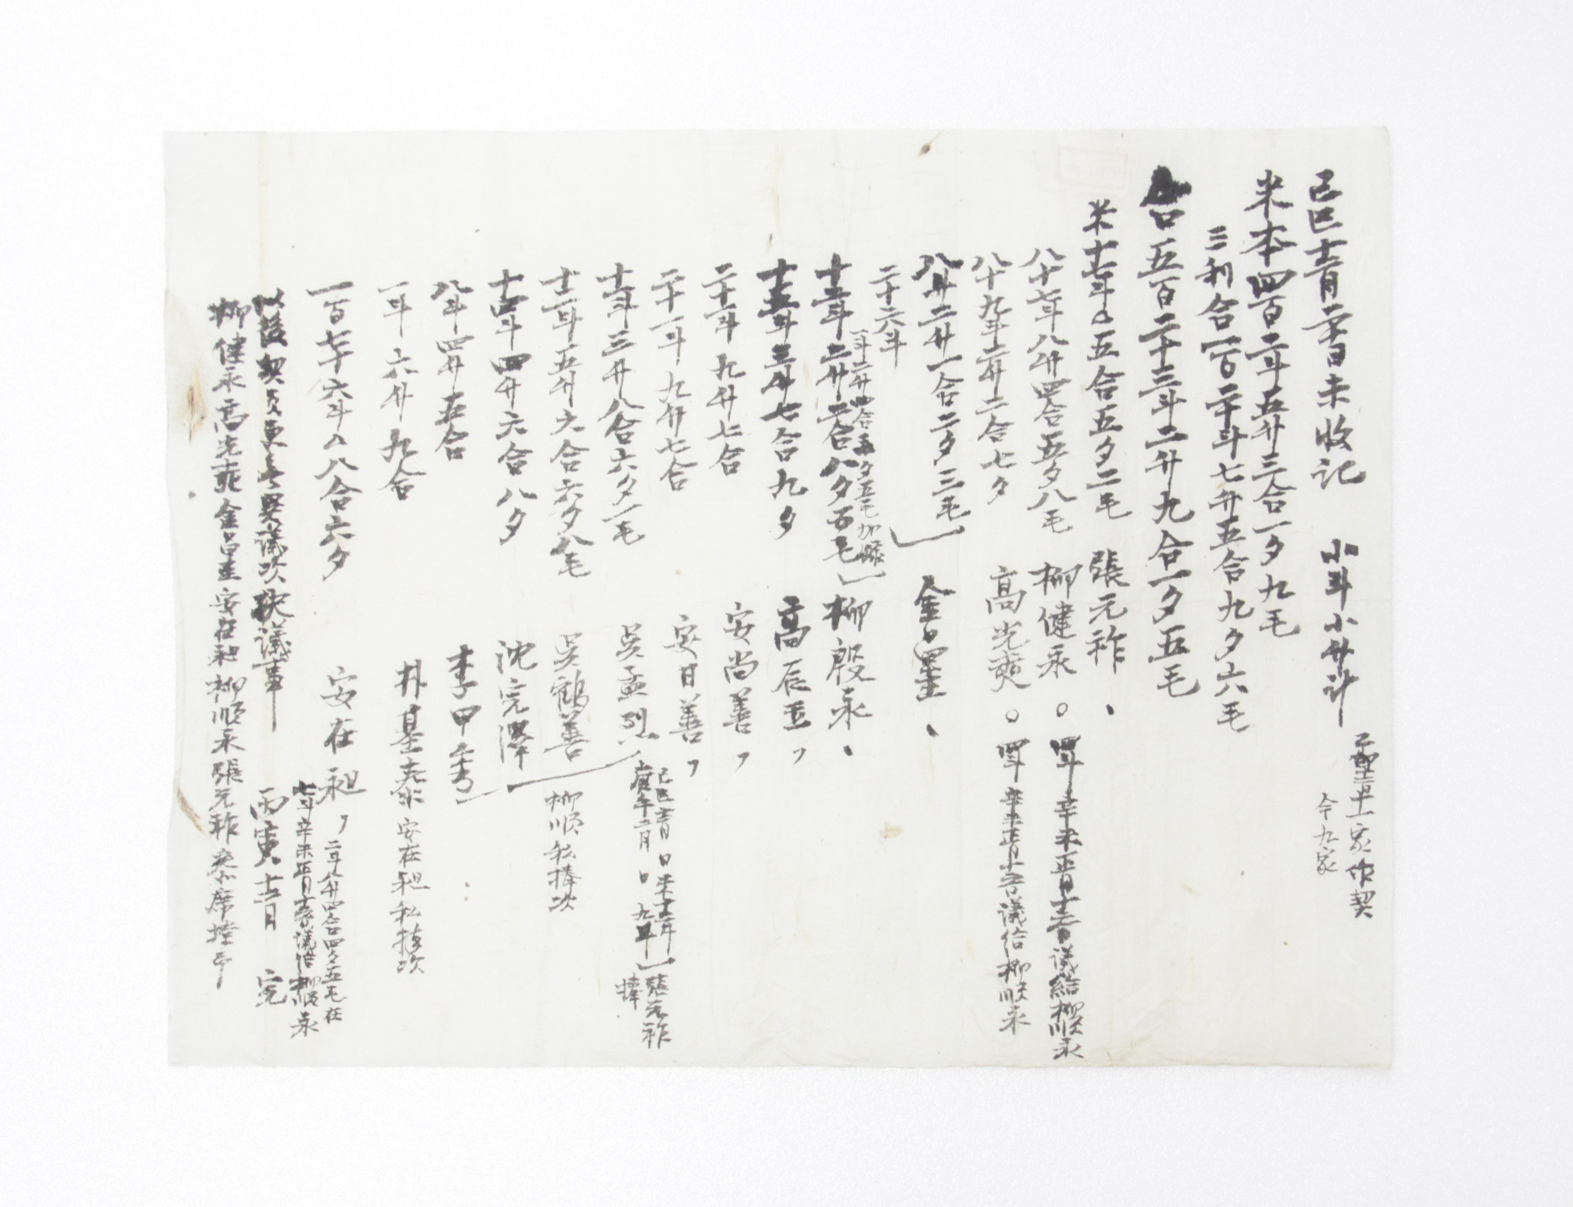 己巳十二月二十日未收記 小斗小升計
十二家作契
今九家
米本四百二斗五升三合一夕九毛
三利合一百二十斗七升五合九夕六毛
合五百二十三斗二升九合一夕五毛
米十七斗〇五合五夕二毛 張元祚
八十七斗八升四合五夕八毛 柳健永 四斗 辛未正月十五日議給柳順永
八十九斗六升二合七夕 高光爽 四斗 辛未正月十五日議給柳順永
八升二升一合二夕三毛 金昌星
二十六斗
一斗二升四合五夕五毛加條
十二斗二升二合八夕五毛 柳殷永
十五斗三升七合九夕 高辰玉
二十二斗九升七合 安尚善
二十一斗九升七合 安日善
十六斗三升八合六夕一毛 吳孟烈
己巳十二月 日米十二斗
庚午二月 日 九斗 張元祚捧
十二斗五升六合六夕八毛 吳鶴善 柳順私捧次
十四斗四升六合八夕 沈完澤
八斗四升五合 李甲秀
一斗六升九合 朴基泰 安在昶私捧次
一百七十六斗〇八合六夕 安在昶 二斗八升四合四夕五毛在
七斗辛未正月十五日議給柳順永
以後契員更無異議次決議事 丙寅十二月 完
柳健永高光爽金昌星安在昶柳順永張元祚參席